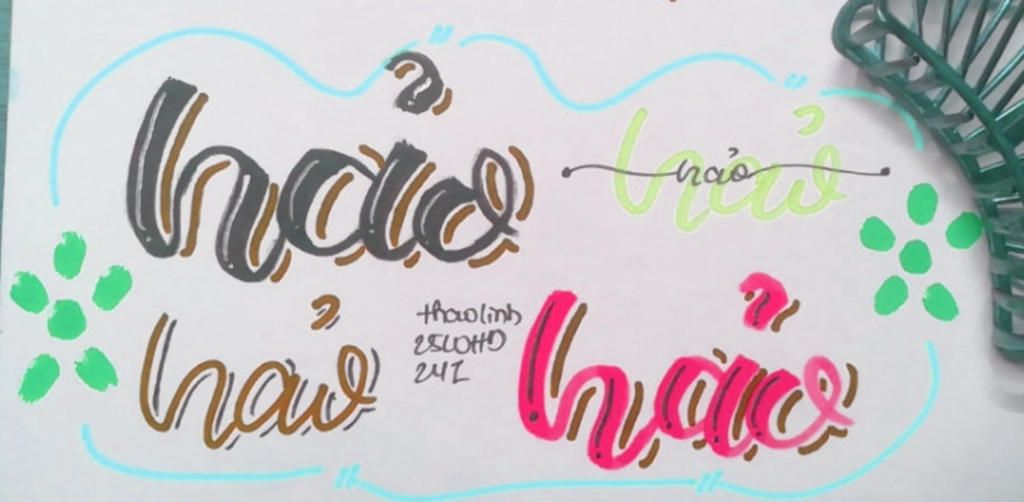 hảo
hảo
hảo
hảo
thaolinh
25LOHD
24I
hảo